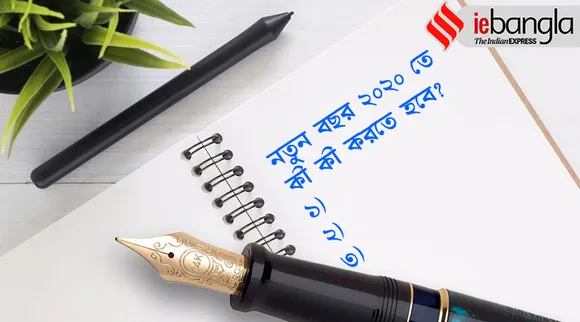 iebangla
The Indian EXPRESS
নতুন বছর ২০২০ তে
কী কী করতে হবে?
১)
২)
৩)
14K